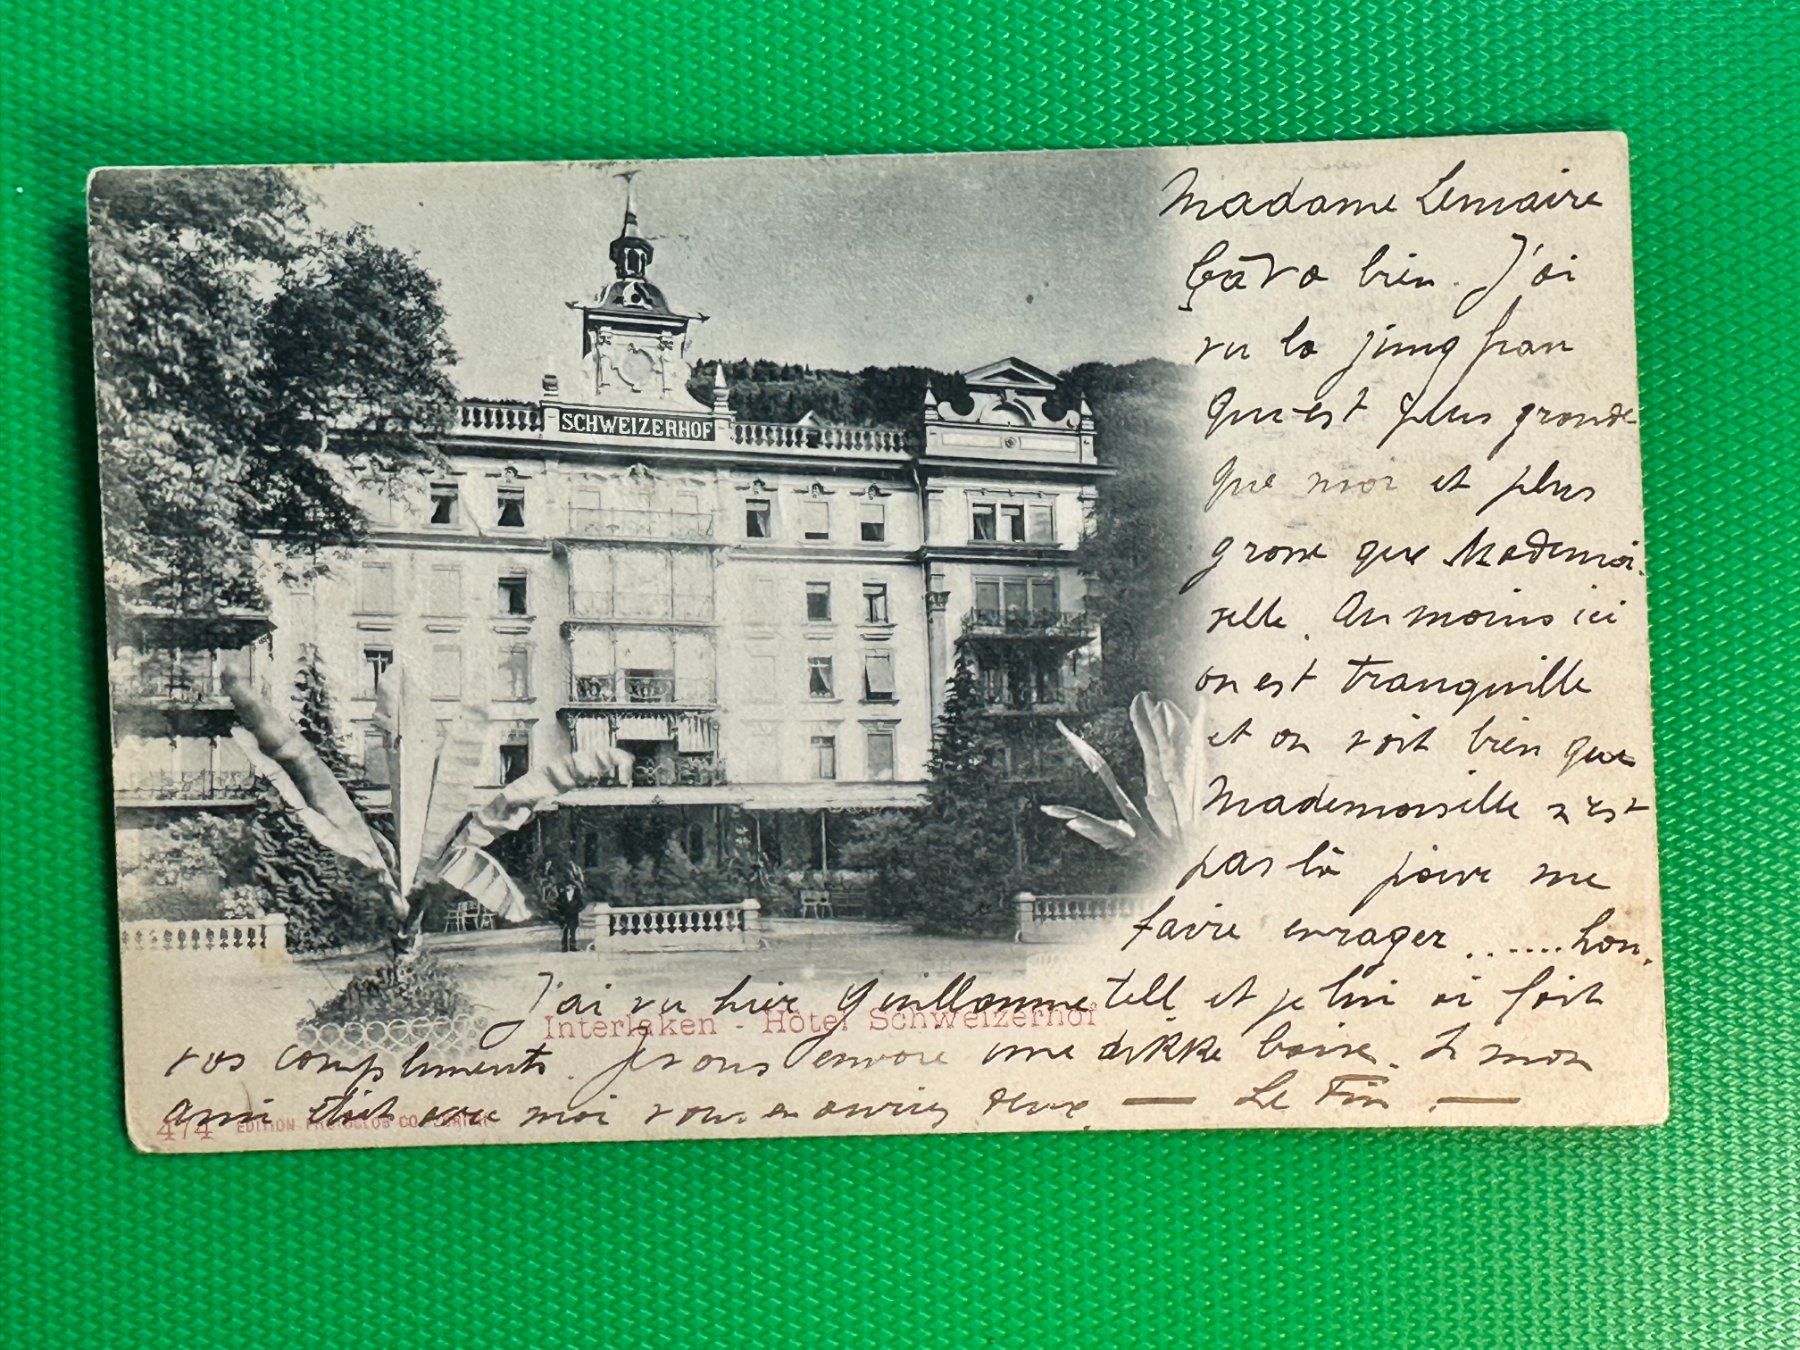 SCHWEIZERHOF
Madame Lemaire
Ça va bien. J'ai
vu la jung frau
qui est plus grande
que moi et plus
grosse que Mademoi-
selle. Au moins ici
on est tranquille
et on voit bien que
Mademoiselle n'est
pas là pour me
faire enrager ...... hon.
J'ai vu hier Guillaume tell et je lui ai fait
vos compliments. Je vous envoie une dikke baise. Si mon
ami était avec moi vous en auriez deux — Le Fin. —
Interlaken - Hôtel Schweizerhof
474 EDITION PHOTOGLOB CO.